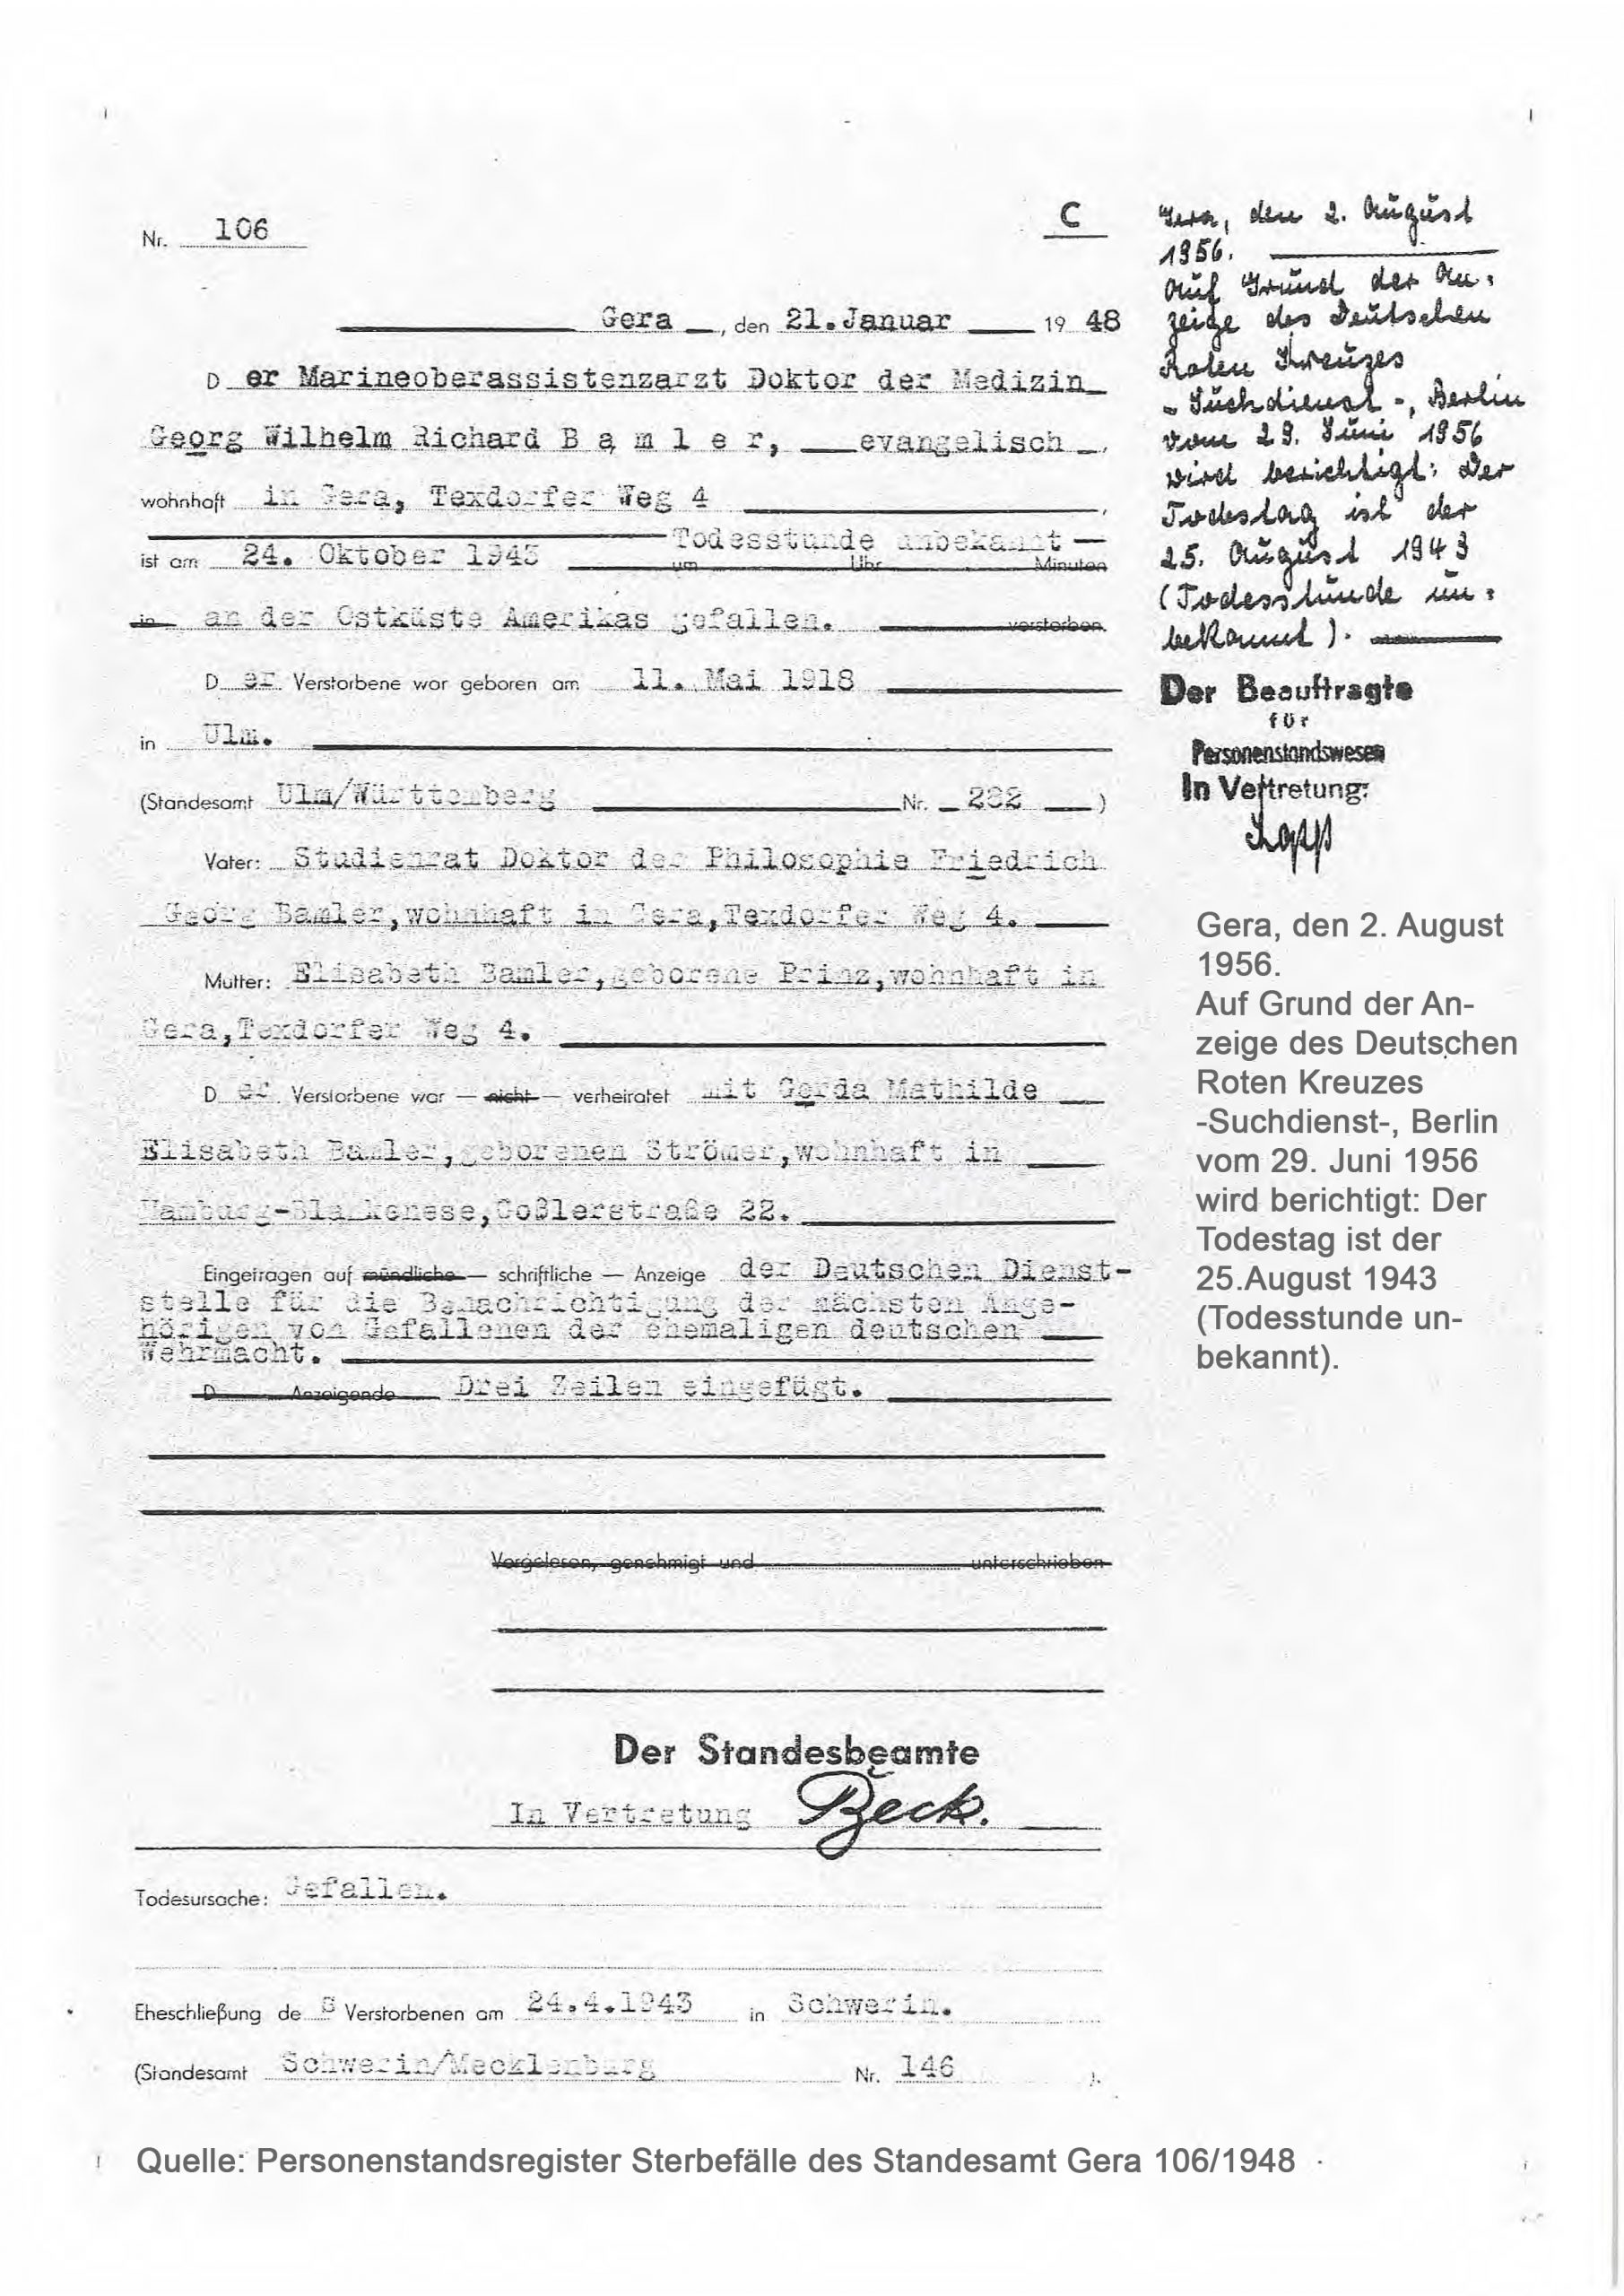 Nr. 106
C
Gera, den 21.Januar 19 48
D er Marineoberassistenzarzt Doktor der Medizin
Georg Wilhelm Richard B a m l e r, evangelisch,
wohnhaft in Gera, Texdorfer Weg 4,
Todesstunde unbekannt
ist am 24. Oktober 1943 um Uhr Minuten
in an der Ostküste Amerikas gefallen. verstorben.
D er Verstorbene war geboren am 11. Mai 1918
in Ulm.
(Standesamt Ulm/Württemberg Nr. 232 )
Vater: Studienrat Doktor der Philosophie Friedrich
Georg Bamler,wohnhaft in Gera,Texdorfer Weg 4.
Mutter: Elisabeth Bamler,geborene Prinz,wohnhaft in
Gera,Texdorfer Weg 4.
D er Verstorbene war — nicht — verheiratet mit Gerda Mathilde
Elisabeth Bamler,geborenen Strömer,wohnhaft in
Hamburg-Blankenese,Goßlerstraße 22.
Eingetragen auf mündliche — schriftliche — Anzeige der Deutschen Dienst-
stelle für die Benachrichtigung der nächsten Ange-
hörigen von Gefallenen der ehemaligen deutschen
Wehrmacht.
D Anzeigende Drei Zeilen eingefügt.
Vorgelesen, genehmigt und unterschrieben
Der Standesbeamte
In Vertretung Beck.
Todesursache: Gefallen.
Eheschließung de s Verstorbenen am 24.4.1943 in Schwerin.
(Standesamt Schwerin/Mecklenburg Nr. 146 ).
Gera, den 2. August
1956.
Auf Grund der An-
zeige des Deutschen
Roten Kreuzes
- Suchdienst -, Berlin
vom 29. Juni 1956
wird berichtigt: Der
Todestag ist der
25. August 1943
(Todesstunde un-
bekannt).
Der Beauftragte
für
Personenstandswesen
In Vertretung:
Gera, den 2. August
1956.
Auf Grund der An-
zeige des Deutschen
Roten Kreuzes
-Suchdienst-, Berlin
vom 29. Juni 1956
wird berichtigt: Der
Todestag ist der
25.August 1943
(Todesstunde un-
bekannt).
Quelle: Personenstandsregister Sterbefälle des Standesamt Gera 106/1948